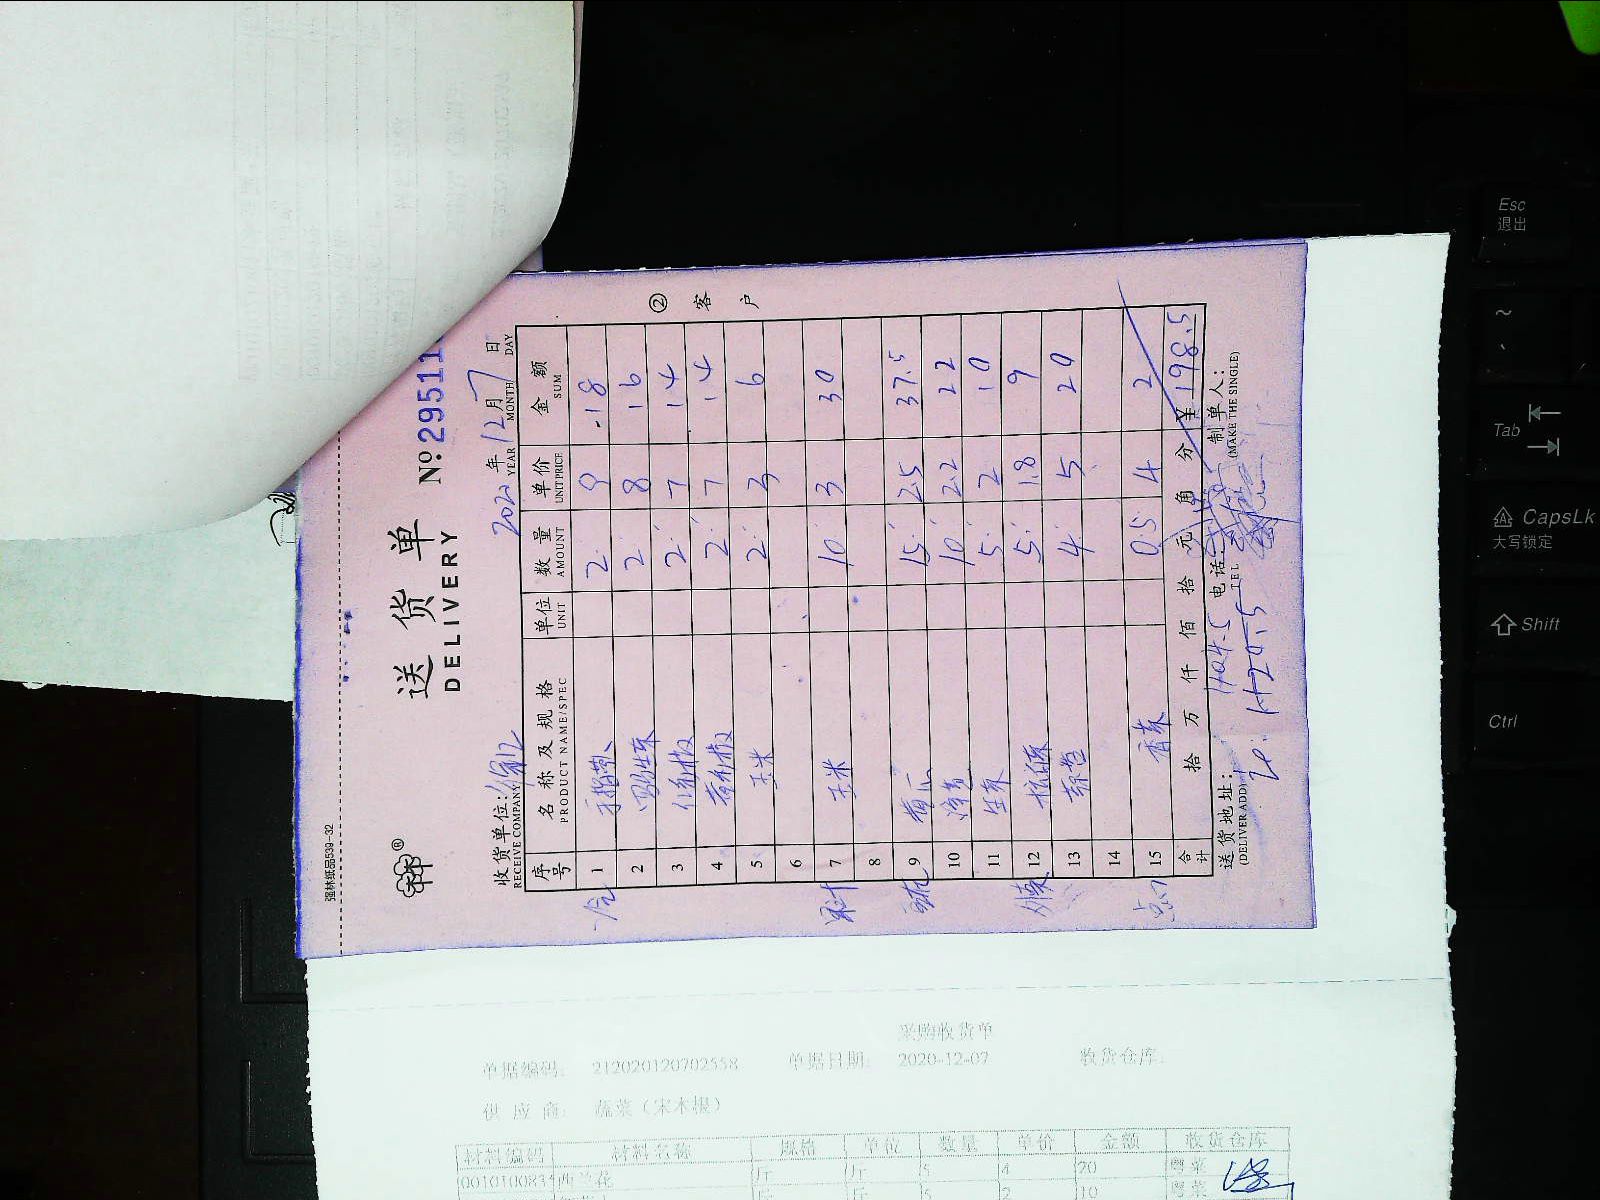 强林纸品539-32
送货单
DELIVERY
No 29511
收货单位:
RECEIVE COMPANY
2020年12月7日
YEAR MONTH DAY
序号 名称及规格 单位 数量 单价 金额
PRODUCT NAME/SPEC UNIT AMOUNT UNIT PRICE SUM
② 客户
1 2 9 18
2 2 8 16
3 2 7 14
4 2 7 14
5 玉米 2 3 6
6
7 玉米 10 3 30
8
9 15 2.5 37.5
10 10 2.2 22
11 生菜 5 2 10
12 5 1.8 9
13 4 5 20
14
15 香菜 0.5 4 2
合计 拾 万 仟 佰 拾 元 角 分 ¥198.5
送货地址: 电话: 制单人:
(DELIVER ADD) TEL (MAKE THE SINGLE)
采购收货单
单据编码: 212020120702558 单据日期: 2020-12-07 收货仓库:
供应商: 蔬菜(宋木根)
材料编码 材料名称 规格 单位 数量 单价 金额 收货仓库
西兰花 斤 斤 5 4 20 粤菜
斤 斤 5 2 10 粤菜
Esc
退出
~
Tab
CapsLk
大写锁定
Shift
Ctrl